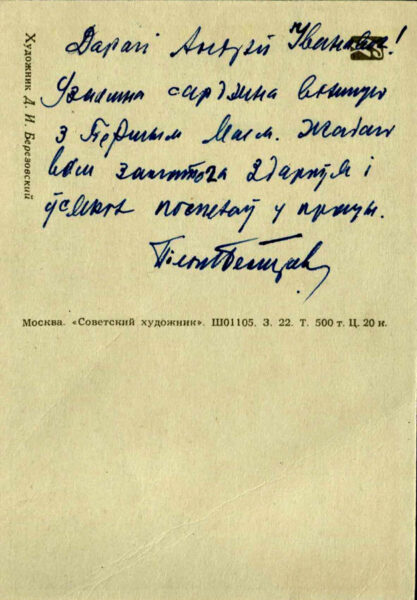 Дарагі Андрэй Іванавіч!
сардэчна віншую
з Першым Маем. Жадаю
вам здароўя і
ўсякіх поспехаў у працы.
Художник Д. И. Березовский
Москва. «Советский художник». Ш01105. З. 22. Т. 500 т. Ц. 20 к.